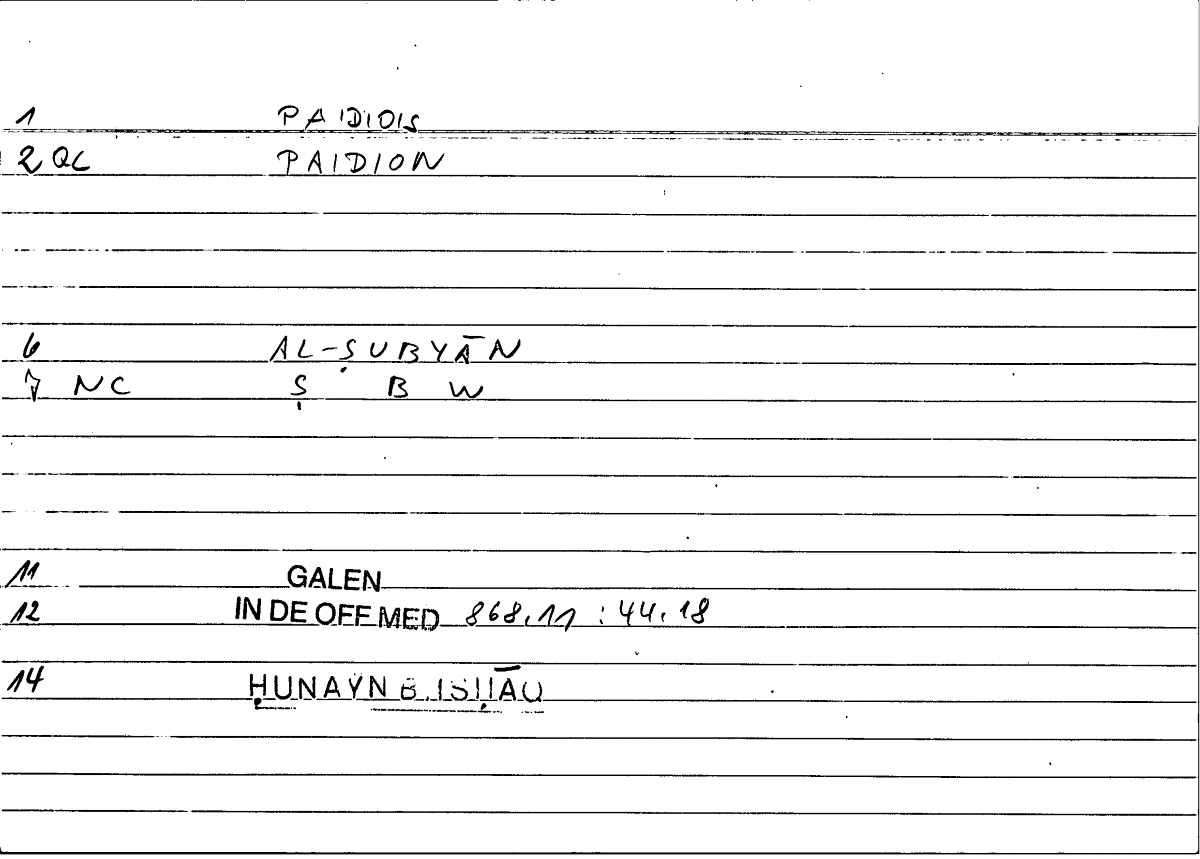 1 PAIDIOIS
2 QC PAIDION
6 AL-ṢUBYĀN
7 NC Ṣ B W
11 GALEN
12 IN DE OFF MED 868,11 : 44,18
14 ḤUNAYN B. ISḤĀQ